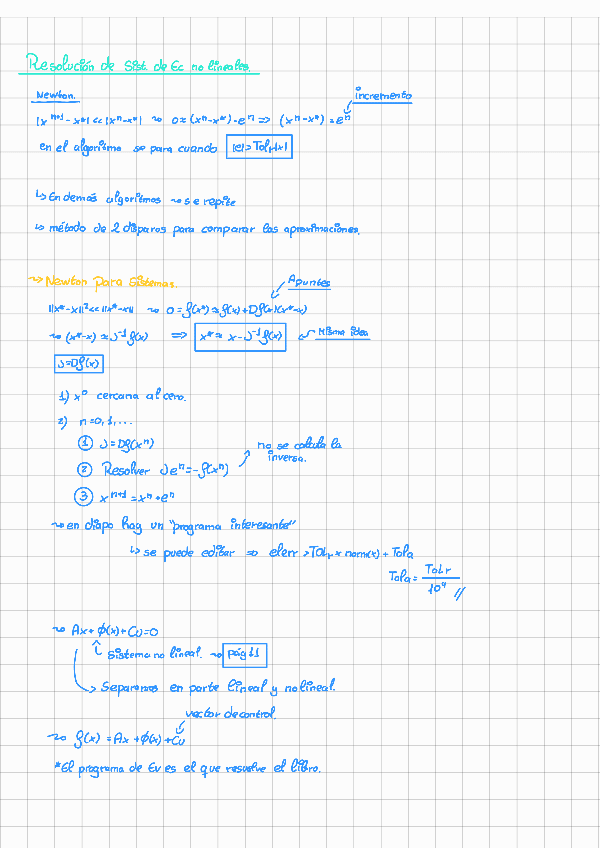 Resolución de Sist. de Ec no lineales.
Newton.
incremento
|xⁿ⁺¹-x*| << |xⁿ-x*| ⇝ 0 ≈ (xⁿ-x*) - eⁿ ⇒ (xⁿ-x*) = eⁿ
en el algoritmo se para cuando |e| > Tolᵣ|x|
↳ En demás algoritmos ⇝ se repite
↳ método de 2 disparos para comparar las aproximaciones.
⇝ Newton para Sistemas.
Apuntes
||x*-x||² << ||x*-x|| ⇝ 0 = f(x*) ≈ f(x) + Df(x)(x*-x)
⇝ (x*-x) ≈ J⁻¹ f(x) ⇒ x* ≈ x - J⁻¹ f(x) Misma idea
J = Df(x)
1) x⁰ cercana al cero.
2) n=0,1,...
① J = Df(xⁿ)
no se calcula la
inversa.
② Resolver Jeⁿ = -f(xⁿ)
③ xⁿ⁺¹ = xⁿ + eⁿ
⇝ en diapo hay un "programa interesante"
↳ se puede editar ⇒ elerr > TOLᵣ * norm(x) + Tola
Tola = Tolr / 10⁴ //
⇝ Ax + ϕ(x) + Cu = 0
Sistema no lineal. ⇝ pág 11
Separamos en parte lineal y no lineal.
vector de control.
⇝ f(x) = Ax + ϕ(x) + Cu
*El programa de Ev es el que resuelve el libro.